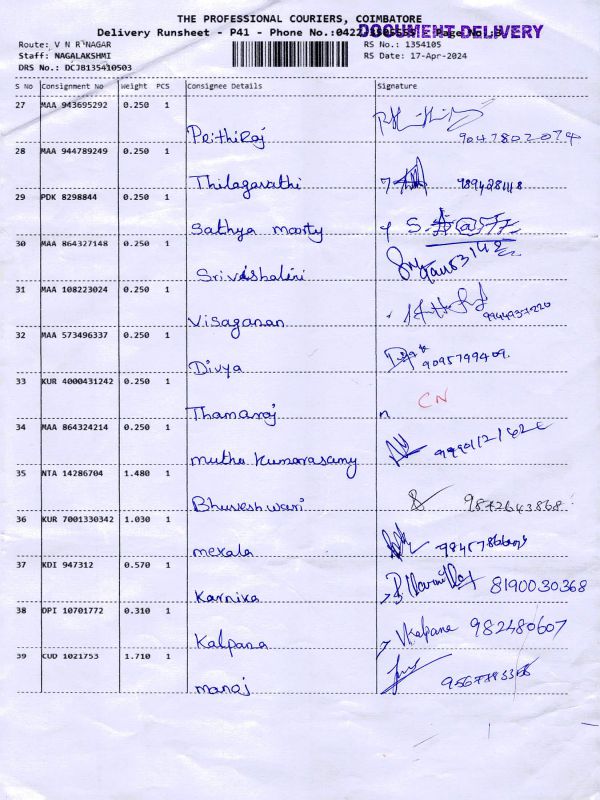 THE PROFESSIONAL COURIERS, COIMBATORE
DOCUMENT DELIVERY
Delivery Runsheet - P41 - Phone No.:0422
Route: V N R NAGAR RS No.: 1354105
Staff: NAGALAKSHMI RS Date: 17-Apr-2024
DRS No.: DCJB135410503
S No Consignment No Weight PCS Consignee Details Signature
27 MAA 943695292 0.250 1
Prithiraj
28 MAA 944789249 0.250 1
Thilagavathi
29 PDK 8298844 0.250 1
Sathya moorty
30 MAA 864327148 0.250 1
Srivishalini
31 MAA 108223024 0.250 1
Visaganan
32 MAA 573496337 0.250 1
Divya 9095799409.
33 KUR 4000431242 0.250 1
CN
Thamaraj n
34 MAA 864324214 0.250 1
muthu kumarasamy
35 NTA 14286704 1.480 1
Bhuveshwari 9872643868
36 KUR 7001330342 1.030 1
mekala
37 KDI 947312 0.570 1
Karnika 8190030368
38 DPI 10701772 0.310 1
Kalpana V Kalpana 982480607
39 CUD 1021753 1.710 1
manoj